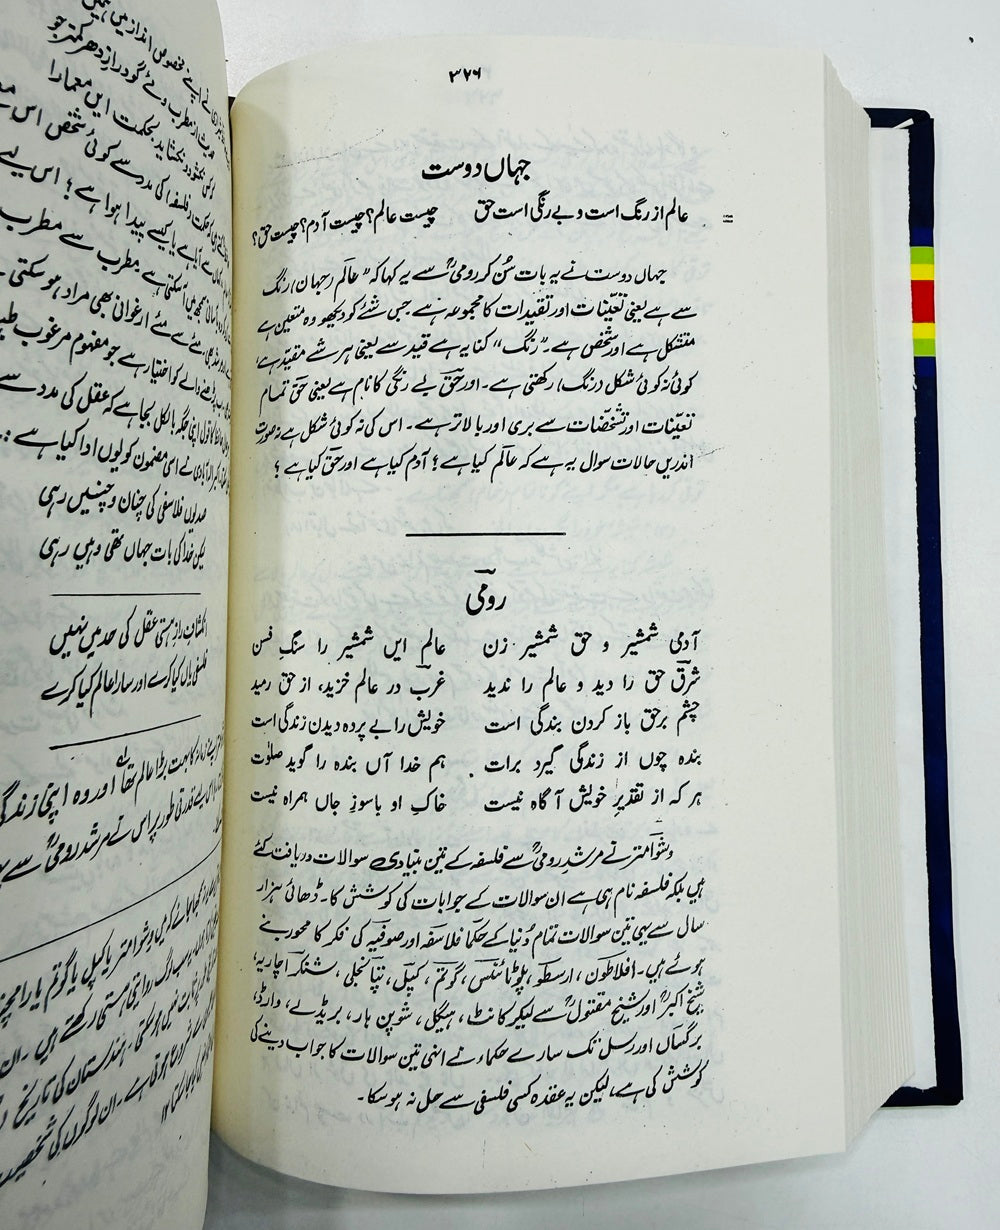 ۳۷۶
جہاں دوست
عالم از رنگ است و بے رنگی است حق چیست عالم؟ چیست آدم؟ چیست حق؟
جہاں دوست نے یہ بات سُن کر رومیؒ سے یہ کہا کہ "عالم (جہان) رنگ
سے ہے یعنی تعیّنات اور تقیدات کا مجموعہ ہے جس شئے کو دیکھو وہ متعین ہے
متشکل ہے اور مشخص ہے۔ "رنگ" کنایہ ہے قید سے یعنی ہر شے مقیّد ہے،
کوئی نہ کوئی شکل (رنگ) رکھتی ہے۔ اور حق بے رنگی کا نام ہے یعنی حق تمام
تعیّنات اور تشخّصات سے بری اور بالاتر ہے۔ اس کی نہ کوئی شکل ہے نہ صورت
اندریں حالات سوال یہ ہے کہ عالم کیا ہے؟ آدم کیا ہے اور حق کیا ہے؟
رومی
آدمی شمشیر و حق شمشیر زن عالم ایں شمشیر را سنگِ فسن
شرق حق را دید و عالم را ندید غرب در عالم خزید، از حق رمید
چشم برحق باز کردن بندگی است خویش را بے پردہ دیدن زندگی است
بندہ چوں از زندگی گیرد برات ہم خدا آں بندہ را گوید صلوٰت
ہر کہ از تقدیرِ خویش آگاہ نیست خاکِ او باسوزِ جاں ہمراہ نیست
وشوامتر نے مرشدِ رومیؒ سے فلسفہ کے تین بنیادی سوالات دریافت کئے
ہیں بلکہ فلسفہ نام ہی ہے ان سوالات کے جوابات کی کوشش کا۔ ڈھائی ہزار
سال سے یہی تین سوالات تمام دُنیا کے حکما فلاسفہ اور صوفیہ کی فکر کا محور بنے
ہوئے ہیں۔ افلاطون، ارسطو، پلوٹائنس، گوتم، کپل، پتانجلی، شنکر آچاریہ،
شیخ اکبرؒ اور شیخ مقتولؒ سے لیکر کانٹ، ہیگل، شوپن ہار، بریڈلے، وارڈ،
برگساں اور رسل تک سارے حکماء نے انہی تین سوالات کا جواب دینے کی
کوشش کی ہے، لیکن یہ عقدہ کسی فلسفی سے حل نہ ہو سکا۔
صدیوں فلاسفی کی چناں و چنیں رہی
لیکن خدا کی بات جہاں تھی وہیں رہی
انکشافِ رازِ ہستی عقل کی حد میں نہیں
فلسفی یاں کیا کرے اور سارا عالم کیا کرے